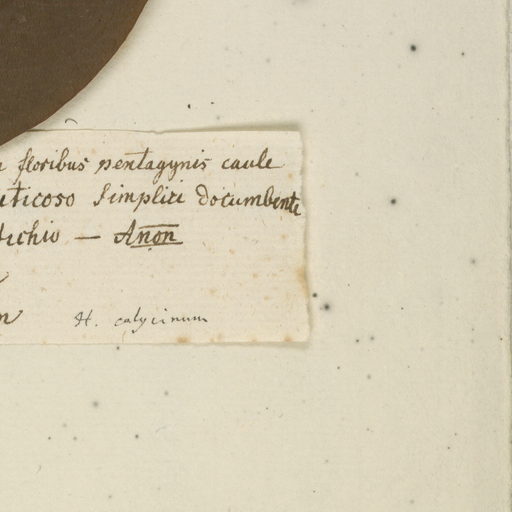 floribus pentagynis caule
uticoso Simplici docum̄bente
tichio — Anon
H. calycinum